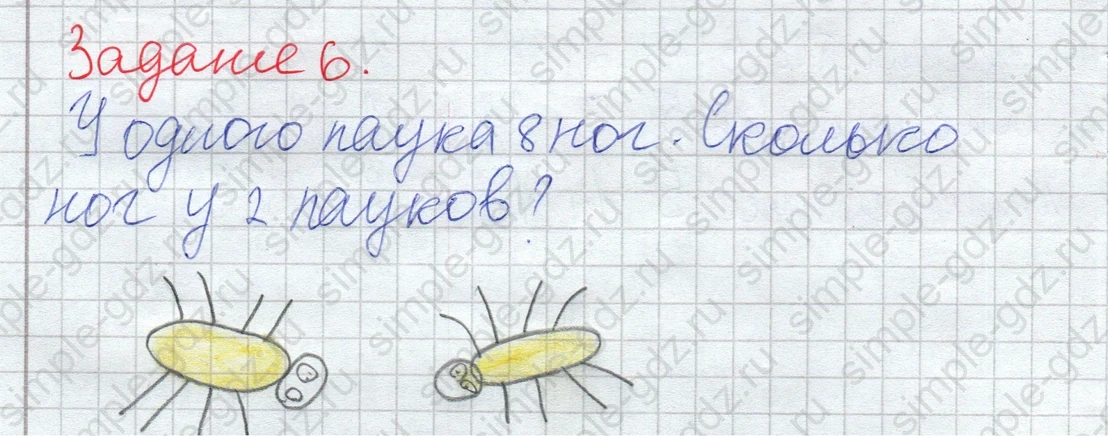 Задание 6.
У одного паука 8 ног. Сколько
ног у 2 пауков?
simple-gdz.ru